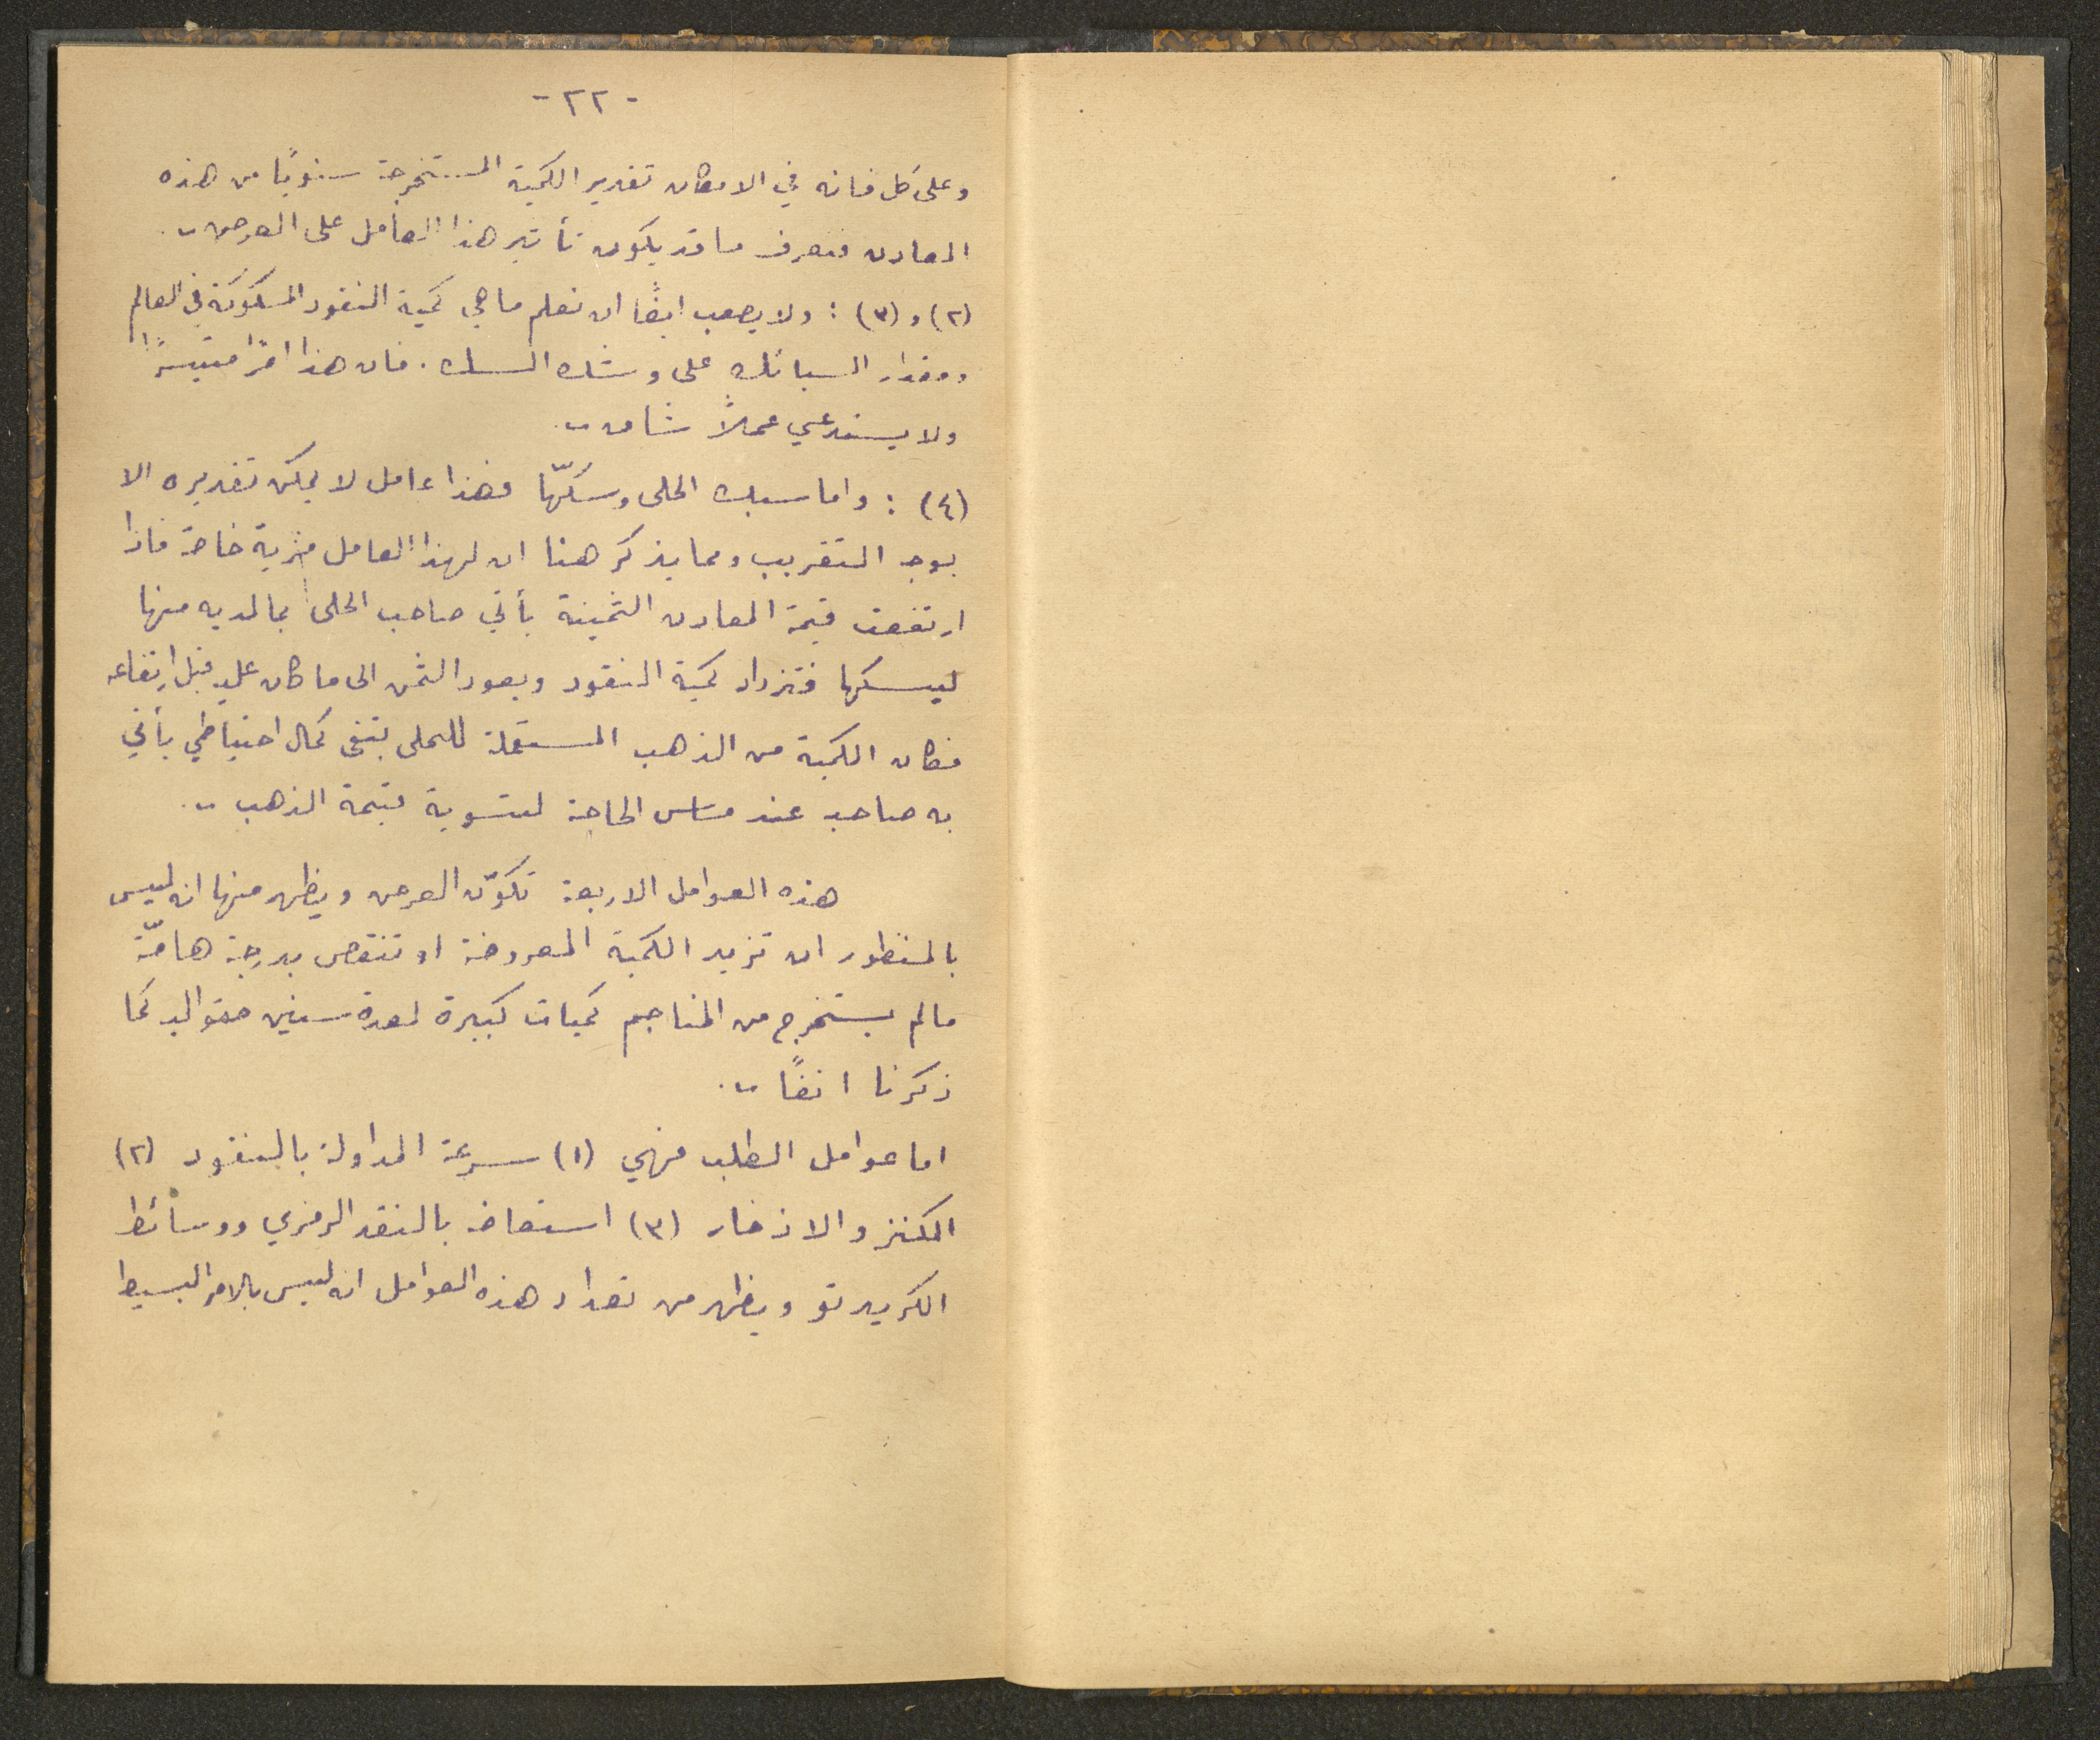 - ٢٢ -
وعلى كل فانه في الامكان تقدير الكمية المستخرجة سنويًا من هذه
المعادن فنعرف ما قد يكون تأثير هذا العامل على العرض ..
(٢) و (٣) : ولا يصعب ايضًا ان نعلم ما هي كمية النقود المسكوكة في العالم
ومقدار السبائك على وشك السك . فان هذا امرًا متيسرًا
ولا يستدعي عملاً شاق ..
(٤) : واما سبك الحلى وسكّها فهذا عامل لا يمكن تقديره الا
بوجه التقريب ومما يذكر هنا ان لهذا العامل مزية خاصة فاذا
ارتفعت قيمة المعادن الثمينة يأتي صاحب الحلى بما لديه منها
ليسكها فتزداد كمية النقود ويعود الثمن الى ما كان عليه قبل ارتفاعه
فكان الكمية من الذهب المستعملة للحلى بتقى كمال احتياطي يأتي
به صاحبه عند مساس الحاجة لتسوية قيمة الذهب ..
هذه العوامل الاربعة تكوّن العرض ويظهر منها انه ليس
بالمنظور ان تزيد الكمية المعروضة او تنقص بدرجة هامّة
مالم يستخرج من المناجم كميات كبيرة لعدة سنين متواليه كما
ذكرنا انفًا ..
اما عوامل الطلب فهي (١) سرعة المداولة بالنقود (٢)
الكنز والاذخار (٣) استعاضه بالنقد الرمزي ووسائط
الكريدتو ويظهر من تعداد هذه العوامل انه ليس بالامر البسيط